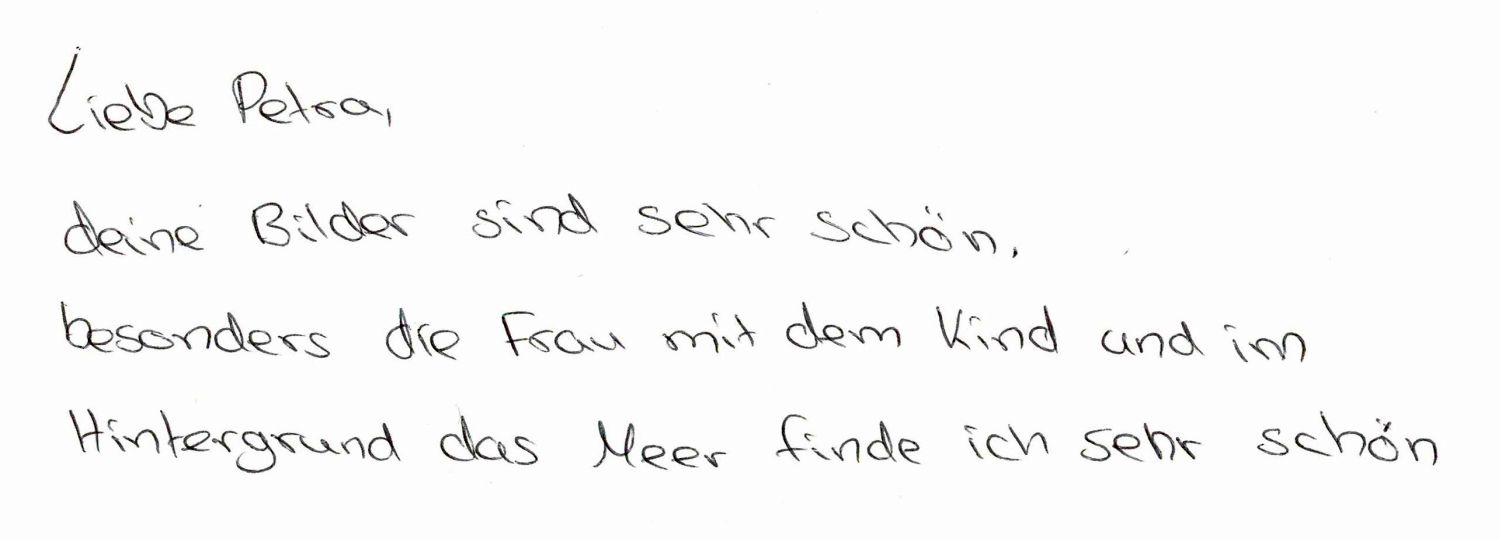 Liebe Petra,
deine Bilder sind sehr schön,
besonders die Frau mit dem Kind und im
Hintergrund das Meer finde ich sehr schön